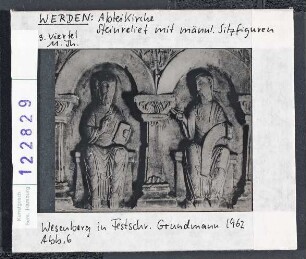 WERDEN: Abteikirche
Steinrelief mit männl. Sitzfiguren
3. Viertel
11. Jh.
122829
Wesenberg in Festschr. Grundmann 1962
Abb. 6